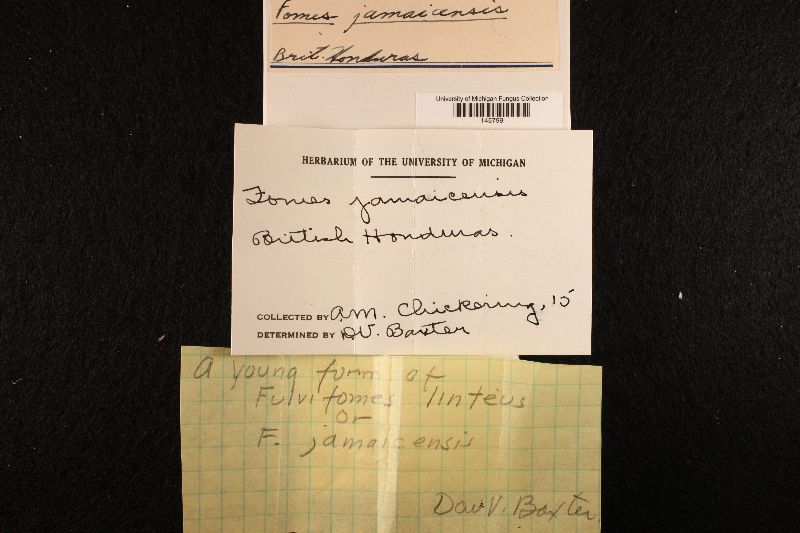 Fomes jamaicensis
Brit. Honduras
University of Michigan Fungus Collection
HERBARIUM OF THE UNIVERSITY OF MICHIGAN
Fomes jamaicensis
British Honduras.
COLLECTED BY A.M. Chickering, 15
DETERMINED BY D.V. Baxter
A young form of
Fulvifomes linteus
or
F. jamaicensis
Dow V. Baxter